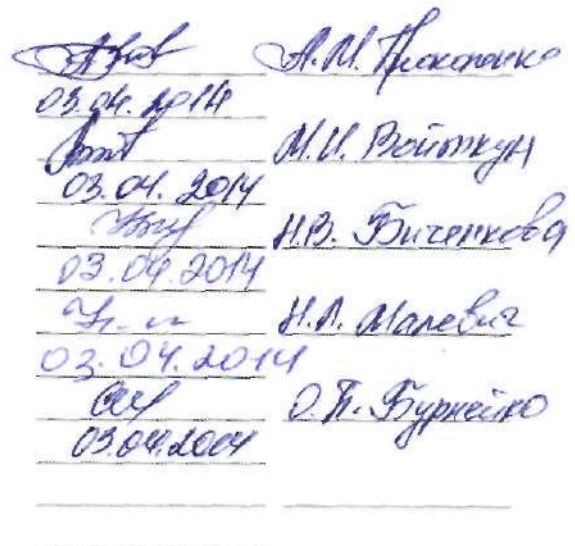 А.М. Прокопенко
03.04.2014
М.И. Войткун
03.04.2014
Н.В. Биченкова
03.04.2014
Н.Л. Малевич
03.04.2014
О.П. Бурнейко
03.04.2014